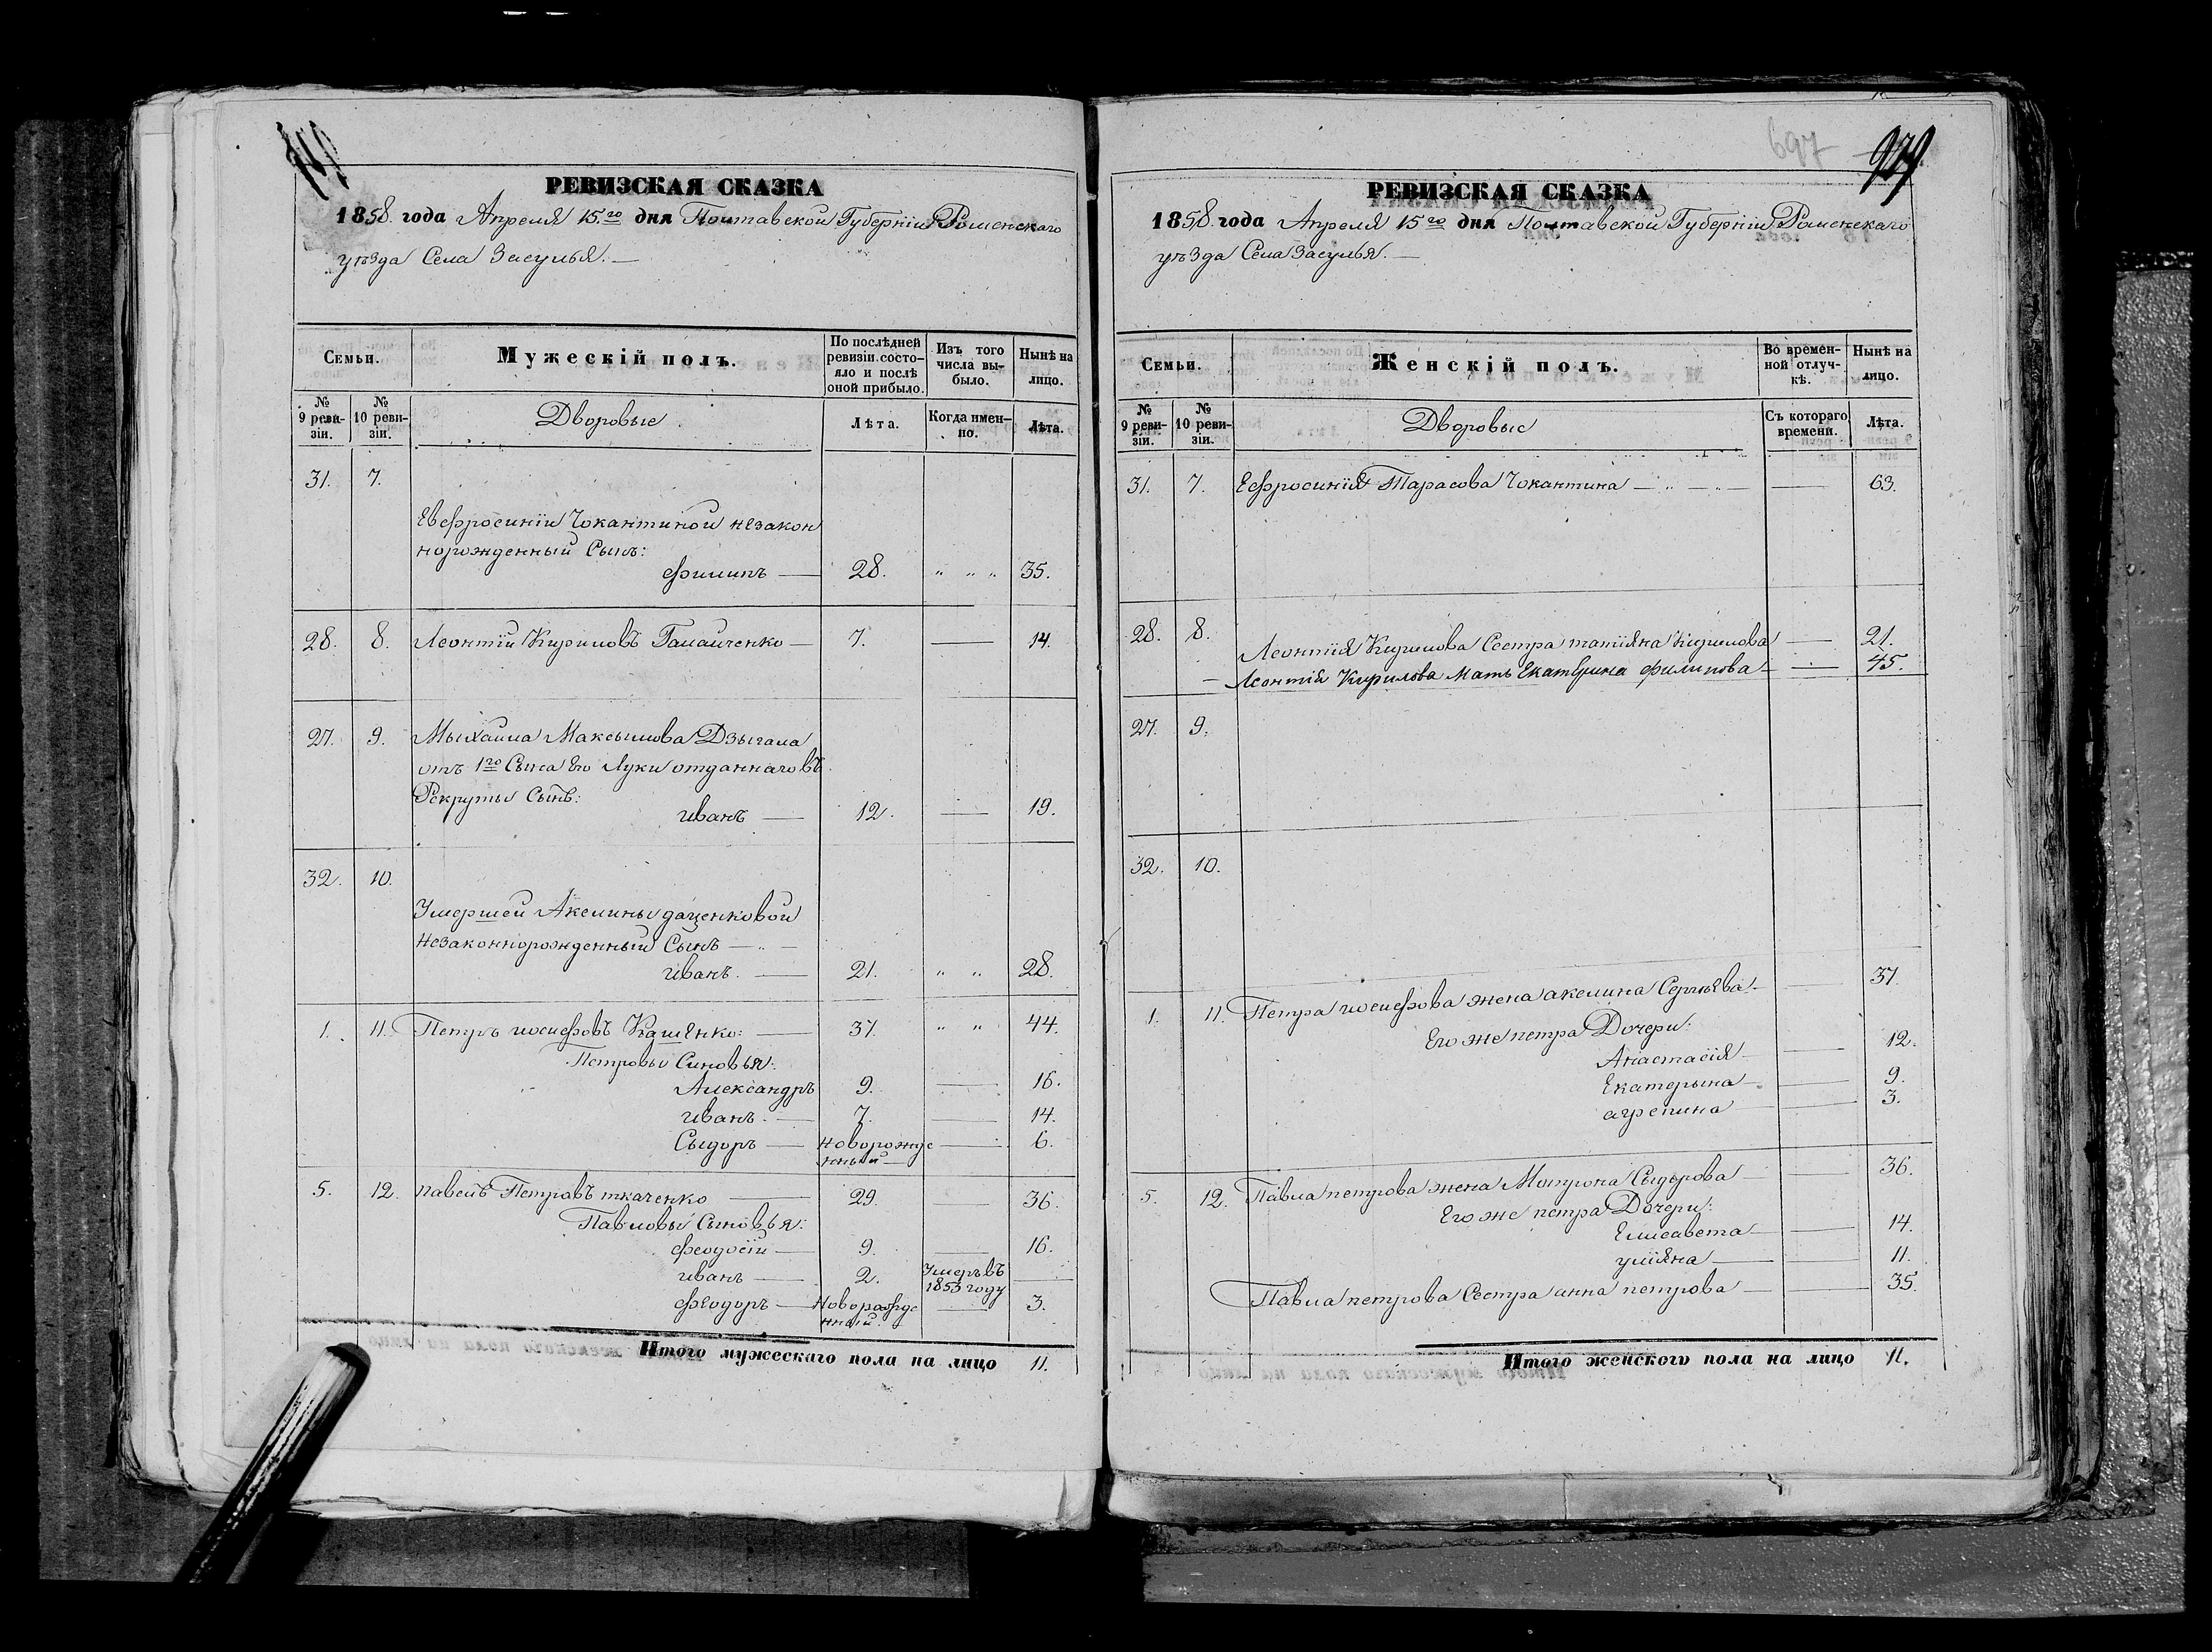 РЕВИЗСКАЯ СКАЗКА
1858. года Апреля 15.го дня Полтавской Губерніи Роменскаго
уѣзда Села Засулья. —
Семьи.
Мужескій полъ.
По послѣдней ревизіи состояло и послѣ оной прибыло.
Изъ того числа выбыло.
Нынѣ на лицо.
№ 9 ревизіи.
№ 10 ревизіи.
Дворовые
Лѣта.
Когда именно.
Лѣта.
31. 7.
Евфросиніи Чокантиной незакон
норожденный Сынъ:
Филипъ — 28. " " " 35.
28. 8. Леонтій Кириловъ Галайченко — 7. — 14.
27. 9. Мыхайла Максымова Дзыгала
отъ 1го Сына его Луки отданнаго въ
Рекруты Сынъ:
иванъ — 12. — 19.
32. 10.
Умершей Акелины даценковой
Незаконнорожденный Сынъ — " —
иванъ. — 21. " " 28.
1. 11. Петръ иосифовъ Кашенко: — 37. " " 44.
Петровы Синовья:
Александръ 9. — 16.
иванъ. — 7. — 14.
Сыдоръ — новорожде — 6.
нный —
5. 12. павелъ Петровъ ткаченко — 29. — 36.
Павловы Сыновья:
феодосій — 9. — 16.
иванъ — 2. Умеръ въ —
1853 году
феодоръ — Новорожде — 3.
нный.
Итого мужескаго пола на лицо 11.
697
РЕВИЗСКАЯ СКАЗКА
1858. года Апреля 15го дня Полтавской Губерніи Роменскаго
уѣзда Села Засулья. —
Семьи.
Женскій полъ.
Во временной отлучкѣ.
Нынѣ на лицо.
№ 9 ревизіи.
№ 10 ревизіи.
Дворовые
Съ котораго времени.
Лѣта.
31. 7. Ефросинія Тарасова Чокантина — " — " — — 63.
28. 8. Леонтія Кирилова Сестра татіяна Кирилова — 21.
— Леонтія Кирилова Мать Екатерина филипова — — 45.
27. 9.
32. 10.
1. 11. Петра иосифова жена акелина Сергѣева — 37.
Его же петра Дочери:
Анастасія — — 12.
Екатерына — — 9.
агрепина — 3.
5. 12. Павла петрова жена Мотрона Сыдорова — — 36.
Его же петра Дочери:
Елисавета — — 14.
уліяна — — 11.
Павла петрова Сестра анна петрова — — 35.
Итого женского пола на лицо 11.